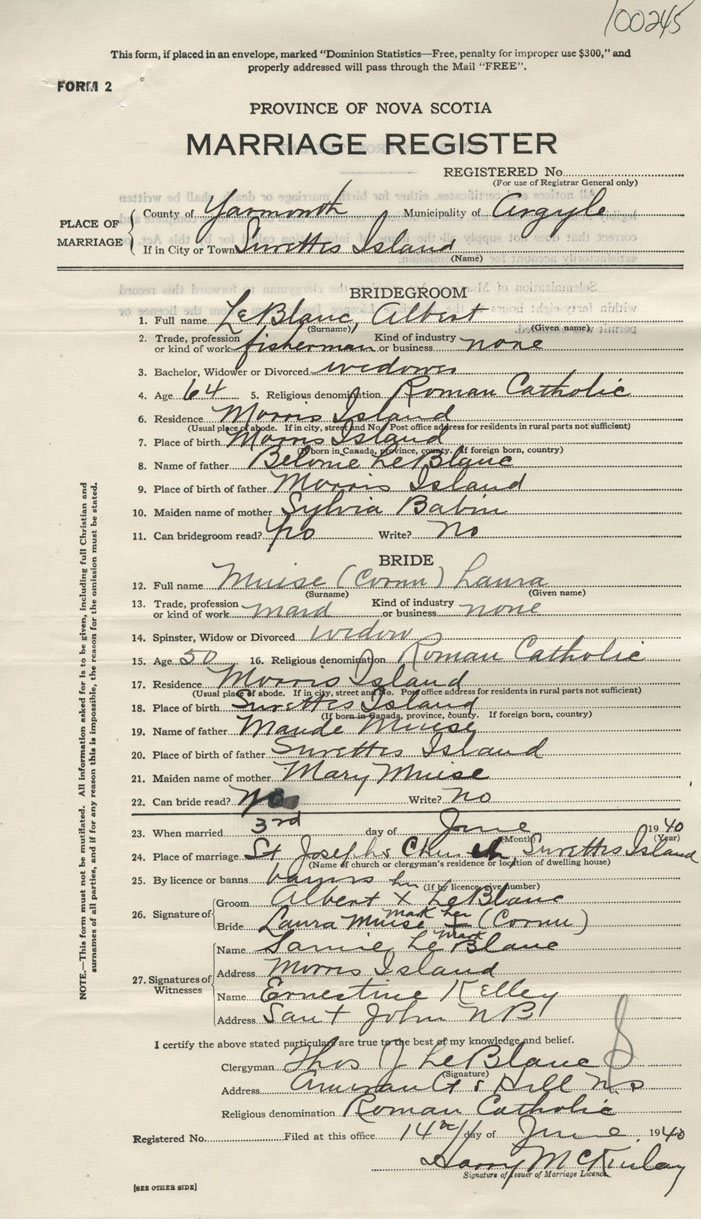 100245
This form, if placed in an envelope, marked "Dominion Statistics—Free, penalty for improper use $300," and
properly addressed will pass through the Mail "FREE".
FORM 2
PROVINCE OF NOVA SCOTIA
MARRIAGE REGISTER
REGISTERED No.
(For use of Registrar General only)
PLACE OF MARRIAGE
County of Yarmouth Municipality of Argyle
If in City or Town Surettes Island
(Name)
BRIDEGROOM
1. Full name LeBlanc, Albert
(Surname) (Given name)
2. Trade, profession or kind of work fisherman Kind of industry or business none
3. Bachelor, Widower or Divorced widower
4. Age 64 5. Religious denomination Roman Catholic
6. Residence Morris Island
(Usual place of abode. If in city, street and No. Post office address for residents in rural parts not sufficient)
7. Place of birth Morris Island
(If born in Canada, province, county. If foreign born, country)
8. Name of father Belonie LeBlanc
9. Place of birth of father Morris Island
10. Maiden name of mother Sylvia Babin
11. Can bridegroom read? No Write? No
BRIDE
12. Full name Muise (Cornu) Laura
(Surname) (Given name)
13. Trade, profession or kind of work maid Kind of industry or business none
14. Spinster, Widow or Divorced widow
15. Age 50 16. Religious denomination Roman Catholic
17. Residence Morris Island
(Usual place of abode. If in city, street and No. Post office address for residents in rural parts not sufficient)
18. Place of birth Surettes Island
(If born in Canada, province, county. If foreign born, country)
19. Name of father Maude Muise
20. Place of birth of father Surettes Island
21. Maiden name of mother Mary Muise
22. Can bride read? No Write? No
23. When married 3rd day of June 1940
(Month) (Year)
24. Place of marriage St Josephs Church, Surettes Island
(Name of church or clergyman's residence or location of dwelling house)
25. By licence or banns banns
(If by licence give number)
26. Signature of
Groom Albert X LeBlanc
mark her
Bride Laura Muise (Cornu)
mark
27. Signatures of Witnesses
Name LeBlanc
Address Morris Island
Name Ernestine Kelley
Address Saint John NB
I certify the above stated particulars are true to the best of my knowledge and belief.
Clergyman Thos J LeBlanc
(Signature)
Address Hill NS
Religious denomination Roman Catholic
Registered No. Filed at this office 14th day of June 1940
Harry McKinlay
Signature of Issuer of Marriage Licence
[SEE OTHER SIDE]
NOTE.—This form must not be mutilated. All information asked for is to be given, including full Christian and
surnames of all parties, and if for any reason this is impossible, the reason for the omission must be stated.